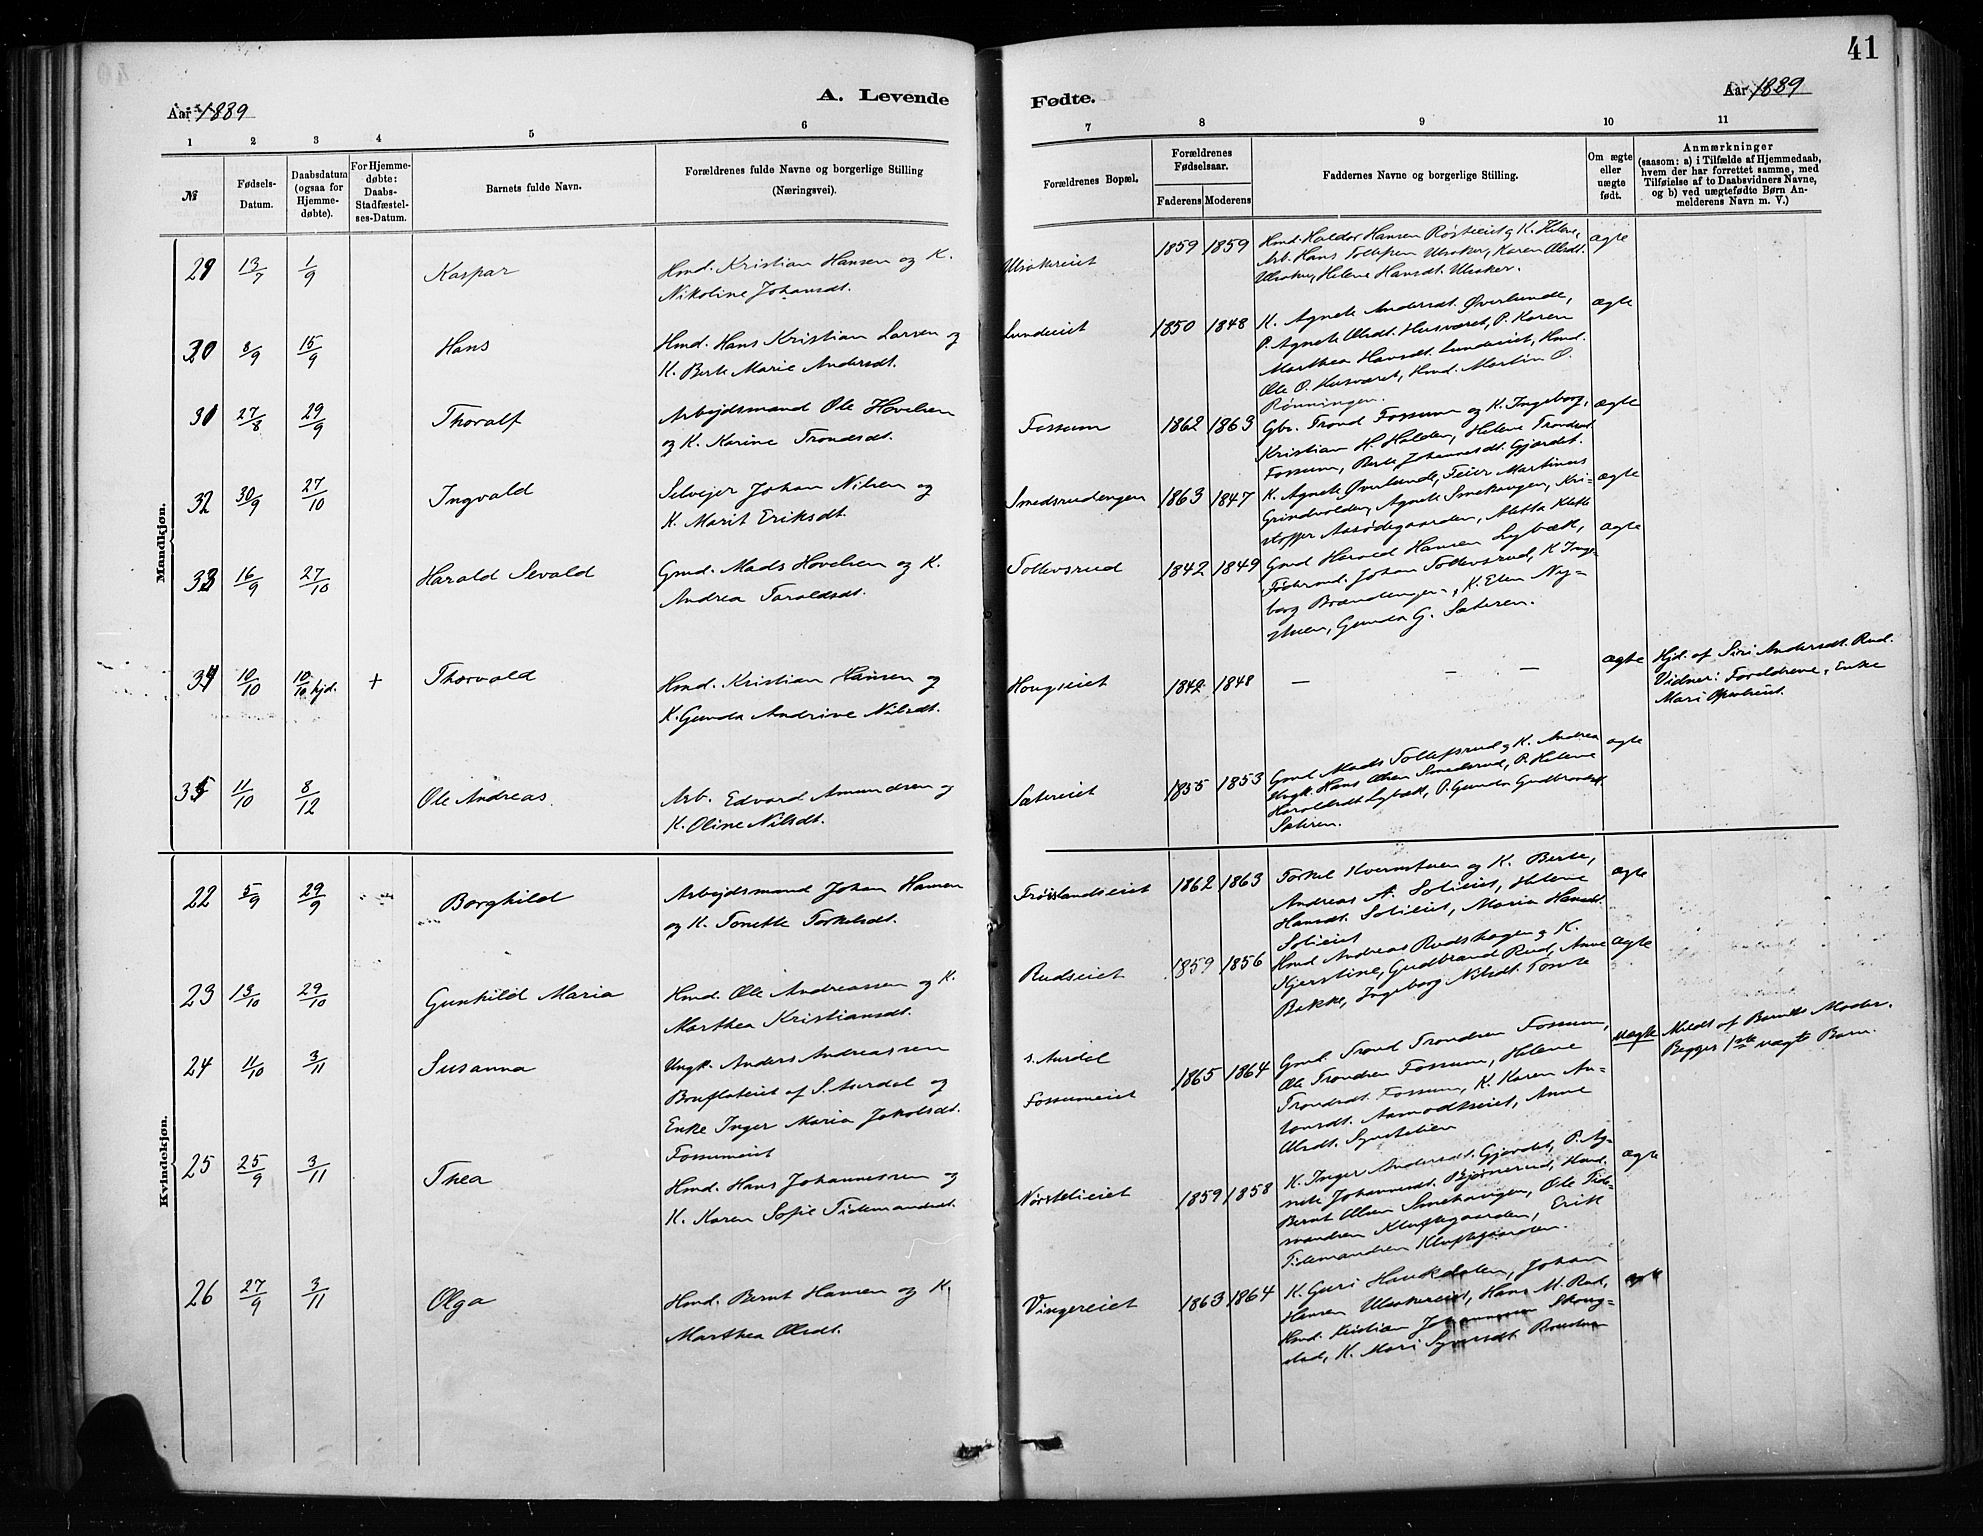 41
Aar 1889
A. Levende
Fødte.
Aar 1889
1 2 3 4 5 6 7 8 9 10 11
№
Fødsels-Datum.
Daabsdatum (ogsaa for Hjemmedøbte).
For Hjemmedøbte: Daabs-Stadfæstelses-Datum.
Barnets fulde Navn.
Forældrenes fulde Navne og borgerlige Stilling (Næringsvei).
Forældrenes Bopæl.
Forældrenes Fødselsaar.
Faderens Moderens
Faddernes Navne og borgerlige Stilling.
Om ægte eller uægte født.
Anmærkninger
(saasom: a) i Tilfælde af Hjemmedaab, hvem der har forrettet samme, med Tilføielse af to Daabsvidners Navne, og b) ved uægtefødte Børn Anmelderens Navn m. V.)
Mandkjøn.
29 13/7 1/9 Kaspar
Hmd. Kristian Hansen og K.
Nikoline Johansdt.
Ulsakereiet 1859 1859
Hmd. Haldor Hansen Røsteeiet og K. Helene,
Arb. Hans Tollefsen Ulsaker, Karen Olsdt.
Ulsaker, Helene Hansdt. Ulsaker.
ægte
30 8/9 15/9 Hans
Hmd. Hans Kristian Larsen og
K. Berte Marie Andersdt.
Lundeeiet 1850 1848
K. Agnete Andersdt. Øverlunde,
P. Agnete Olsdt. Husværet, P. Karen
Marthea Hansdt. Lundeeiet, Hmd.
Ole O. Husværet, Hmd. Martin O.
Rønningen.
ægte
31 27/8 29/9 Thoralf
Arbejdsmand Ole Hovelsen
og K. Karine Trondsdt.
Fossum 1862 1863
Gbr. Trond Fossum og K. Ingeborg,
Kristian H. Halden, Helene Trondsdt.
Fossum, Berte Johannesdt. Gjærdet.
ægte
32 30/9 27/10 Ingvald
Selvejer Johan Nilsen og
K. Marit Eriksdt.
Smedsrudengen 1863 1847
K. Agnete Øverlunde, Feier Martinus
Grindvolden, Agnete Smehaugen, Kristoffer
Aasødegaarden, Mette Klette
ægte
33 16/9 27/10 Harald Sevald
Gmd. Mads Hovelsen og K.
Andrea Haraldsdt.
Tollevsrud 1842 1849
Gmd Harald Hansen Lybæk,
Føderaad. Johan Tollevsrud, K Ingeborg
Brændengen, K. Elen Nystuen,
Gunda G. Sæteren.
ægte
34 10/10 10/10 hjd. + Thorvald
Hmd. Kristian Hansen og
K. Gunda Andrine Nilsdt.
Hougseiet 1842 1848 — — —
ægte
Hjd. af Siri Andersdt. Rud.
Vidner: Forældrene, Enke
Mari
35 11/10 8/12 Ole Andreas.
Arb. Edvard Amundsen og
K. Oline Nilsdt.
Sætereiet 1855 1853
Gmd Mads Tollefsrud og K. Andrea
Ungk. Hans Olsen Smedsrud, P. Helene
Haraldsdt Lybæk, P. Gunda Gudbrandsdt.
Sæteren.
ægte
Kvindekjøn.
22 5/9 29/9 Borghild
Arbejdsmand Johan Hansen
og K. Tonette Torkelsdt.
Frøislandseiet 1862 1863
Torkel Kvernstuen og K. Berte,
Andreas A. Solieiet, Helene
Hansdt. Solieiet, Maria Hansdt.
Solieiet
ægte
23 13/10 29/10 Gunhild Maria
Hmd. Ole Andreassen og K.
Marthea Kristiansdt.
Rudseiet 1859 1856
Hmd Andreas Rudshagen og K.
Kjerstine, Gudbrand Rud, Anne
Bakke, Ingeborg Nilsdt. Tomte
ægte
24 11/10 3/11 Susanna
Ungk. Anders Andreassen
Bruflateiet af S. Aurdal og
Enke Inger Maria Jakobsdt.
Fossumeiet
s. Aurdal
Fossumeiet
1865 1864
Gmd. Trond Trondsen Fossum,
Ole Trondsen Fossum, Helene
Trondsdt. Fossum, K. Karen Antonsdt.
Aamodtseiet, Anne
Olsdt. Synstelien
uægte
Meldt af Barnets Moder.
Begges 1ste uægte Barn.
25 25/9 3/11 Thea
Hmd. Hans Johannessen og
K. Karen Sofie Tidemandsdt.
Nørstelieiet 1859 1858
K. Inger Andersdt. Gjærdet, P. Agnete
Johannesdt. Bjørnerud, Hmd.
Bernt Olsen Smehaugen, Ole Tidemandsen
Kluftegaarden, Erik
Tidemandsen Kluftegaarden.
ægte
26 27/9 3/11 Olga
Hmd. Bernt Hansen og K.
Marthea Olsdt.
Vingereiet 1863 1864
K. Guri Haukdalen, Johan
Hansen Ulsakereiet, Hans M. Rud,
Hmd. Kristian Johannesen Skougstad,
K. Mari Syversdt.
ægte